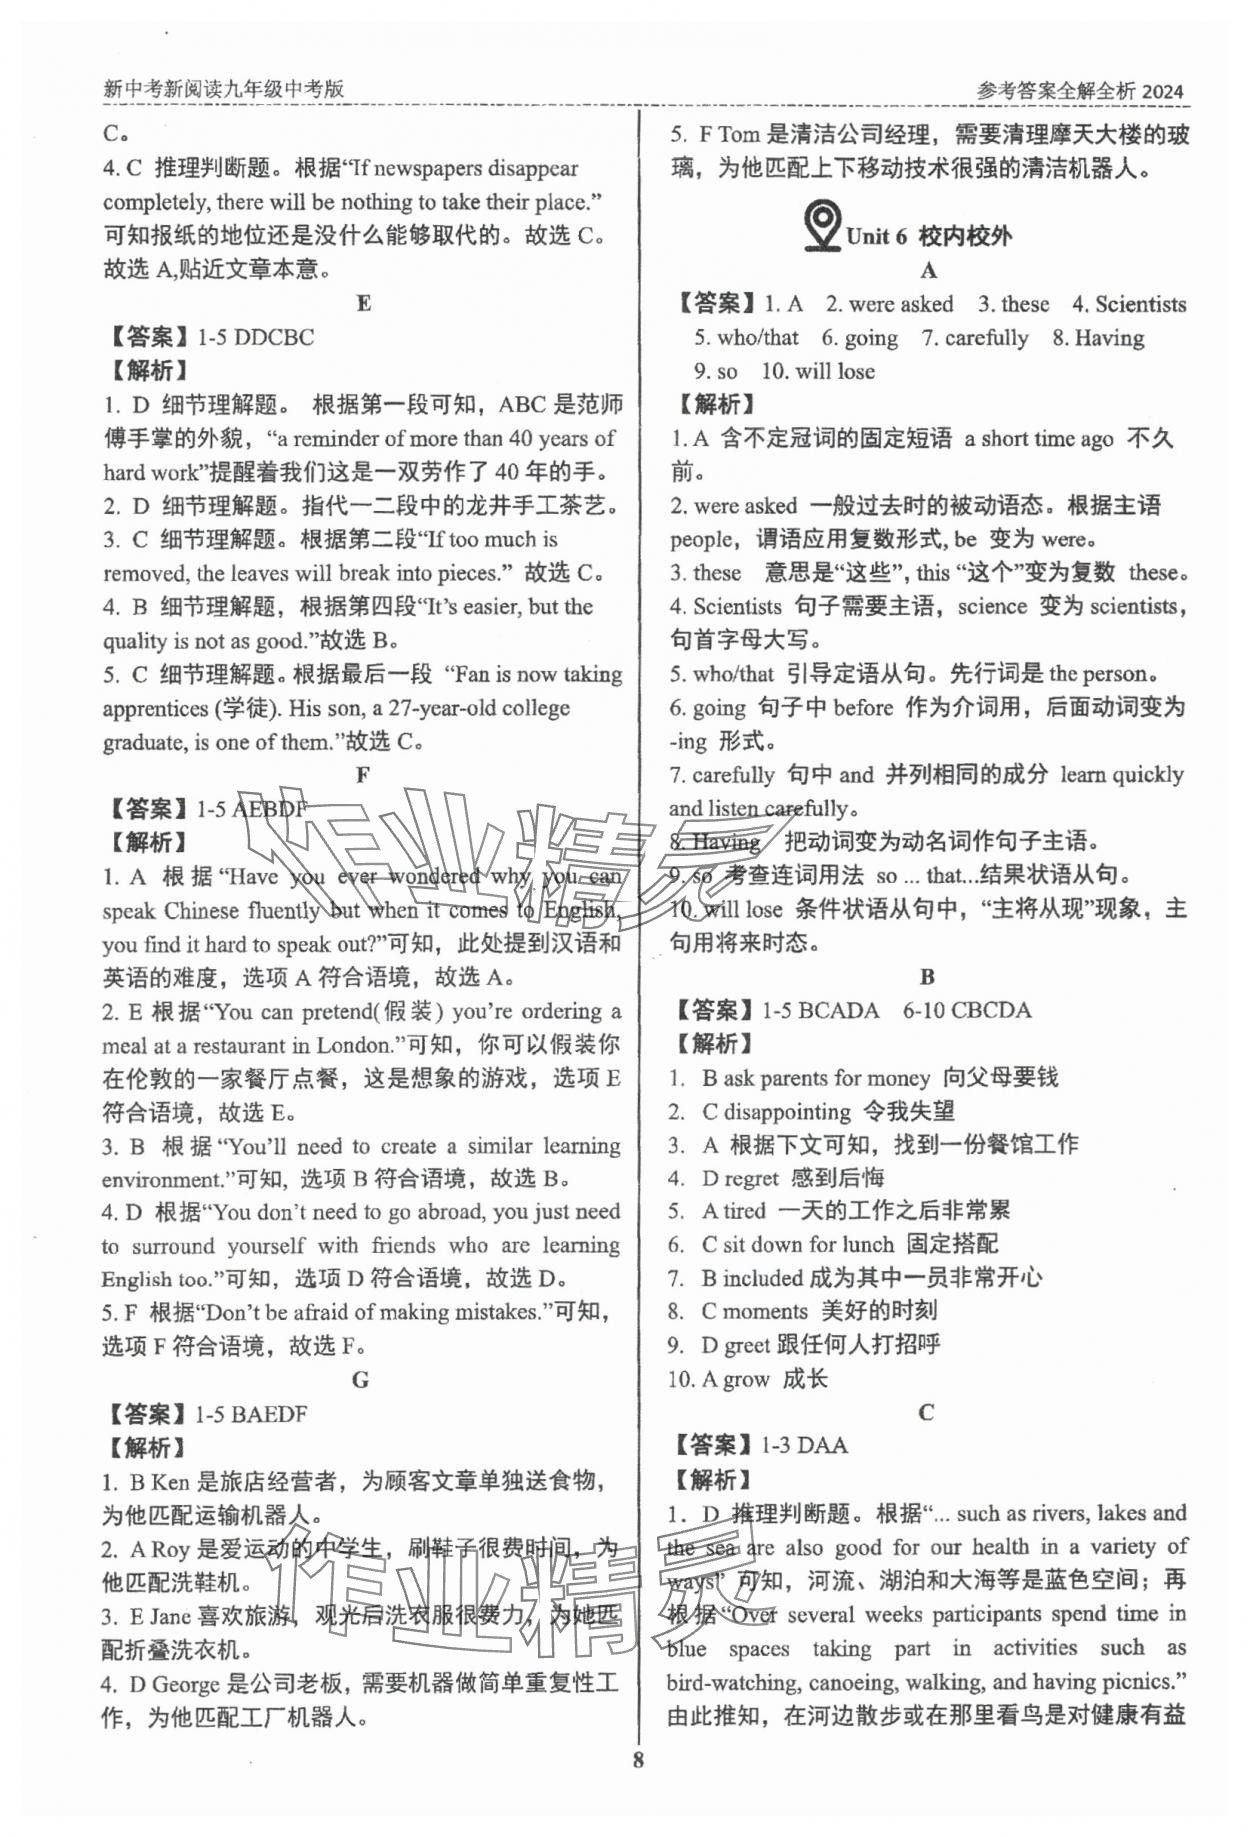 新中考新阅读九年级中考版
参考答案全解全析 2024
C。
4. C 推理判断题。根据“If newspapers disappear
completely, there will be nothing to take their place.”
可知报纸的地位还是没什么能够取代的。故选 C。
故选 A,贴近文章本意。
E
【答案】1-5 DDCBC
【解析】
1. D 细节理解题。 根据第一段可知，ABC 是范师
傅手掌的外貌，“a reminder of more than 40 years of
hard work”提醒着我们这是一双劳作了 40 年的手。
2. D 细节理解题。指代一二段中的龙井手工茶艺。
3. C 细节理解题。根据第二段“If too much is
removed, the leaves will break into pieces.” 故选 C。
4. B 细节理解题，根据第四段“It’s easier, but the
quality is not as good.”故选 B。
5. C 细节理解题。根据最后一段 “Fan is now taking
apprentices (学徒). His son, a 27-year-old college
graduate, is one of them.”故选 C。
F
【答案】1-5 AEBDF
【解析】
1. A 根据“Have you ever wondered why you can
speak Chinese fluently but when it comes to English,
you find it hard to speak out?”可知，此处提到汉语和
英语的难度，选项 A 符合语境，故选 A。
2. E 根据“You can pretend(假装) you’re ordering a
meal at a restaurant in London.”可知，你可以假装你
在伦敦的一家餐厅点餐，这是想象的游戏，选项 E
符合语境，故选 E。
3. B 根据“You’ll need to create a similar learning
environment.”可知, 选项 B 符合语境，故选 B。
4. D 根据“You don’t need to go abroad, you just need
to surround yourself with friends who are learning
English too.”可知，选项 D 符合语境，故选 D。
5. F 根据“Don’t be afraid of making mistakes.”可知，
选项 F 符合语境，故选 F。
G
【答案】1-5 BAEDF
【解析】
1. B Ken 是旅店经营者，为顾客文章单独送食物，
为他匹配运输机器人。
2. A Roy 是爱运动的中学生，刷鞋子很费时间，为
他匹配洗鞋机。
3. E Jane 喜欢旅游，观光后洗衣服很费力，为她匹
配折叠洗衣机。
4. D George 是公司老板，需要机器做简单重复性工
作，为他匹配工厂机器人。
5. F Tom 是清洁公司经理，需要清理摩天大楼的玻
璃，为他匹配上下移动技术很强的清洁机器人。
Unit 6 校内校外
A
【答案】1. A 2. were asked 3. these 4. Scientists
5. who/that 6. going 7. carefully 8. Having
9. so 10. will lose
【解析】
1. A 含不定冠词的固定短语 a short time ago 不久
前。
2. were asked 一般过去时的被动语态。根据主语
people，谓语应用复数形式, be 变为 were。
3. these 意思是“这些”, this “这个”变为复数 these。
4. Scientists 句子需要主语，science 变为 scientists，
句首字母大写。
5. who/that 引导定语从句。先行词是 the person。
6. going 句子中 before 作为介词用，后面动词变为
-ing 形式。
7. carefully 句中 and 并列相同的成分 learn quickly
and listen carefully。
8. Having 把动词变为动名词作句子主语。
9. so 考查连词用法 so ... that...结果状语从句。
10. will lose 条件状语从句中，“主将从现”现象，主
句用将来时态。
B
【答案】1-5 BCADA 6-10 CBCDA
【解析】
1. B ask parents for money 向父母要钱
2. C disappointing 令我失望
3. A 根据下文可知，找到一份餐馆工作
4. D regret 感到后悔
5. A tired 一天的工作之后非常累
6. C sit down for lunch 固定搭配
7. B included 成为其中一员非常开心
8. C moments 美好的时刻
9. D greet 跟任何人打招呼
10. A grow 成长
C
【答案】1-3 DAA
【解析】
1. D 推理判断题。根据“... such as rivers, lakes and
the sea are also good for our health in a variety of
ways” 可知，河流、湖泊和大海等是蓝色空间；再
根据“Over several weeks participants spend time in
blue spaces taking part in activities such as
bird-watching, canoeing, walking, and having picnics.”
由此推知，在河边散步或在那里看鸟是对健康有益
8
作业精灵
作业精灵